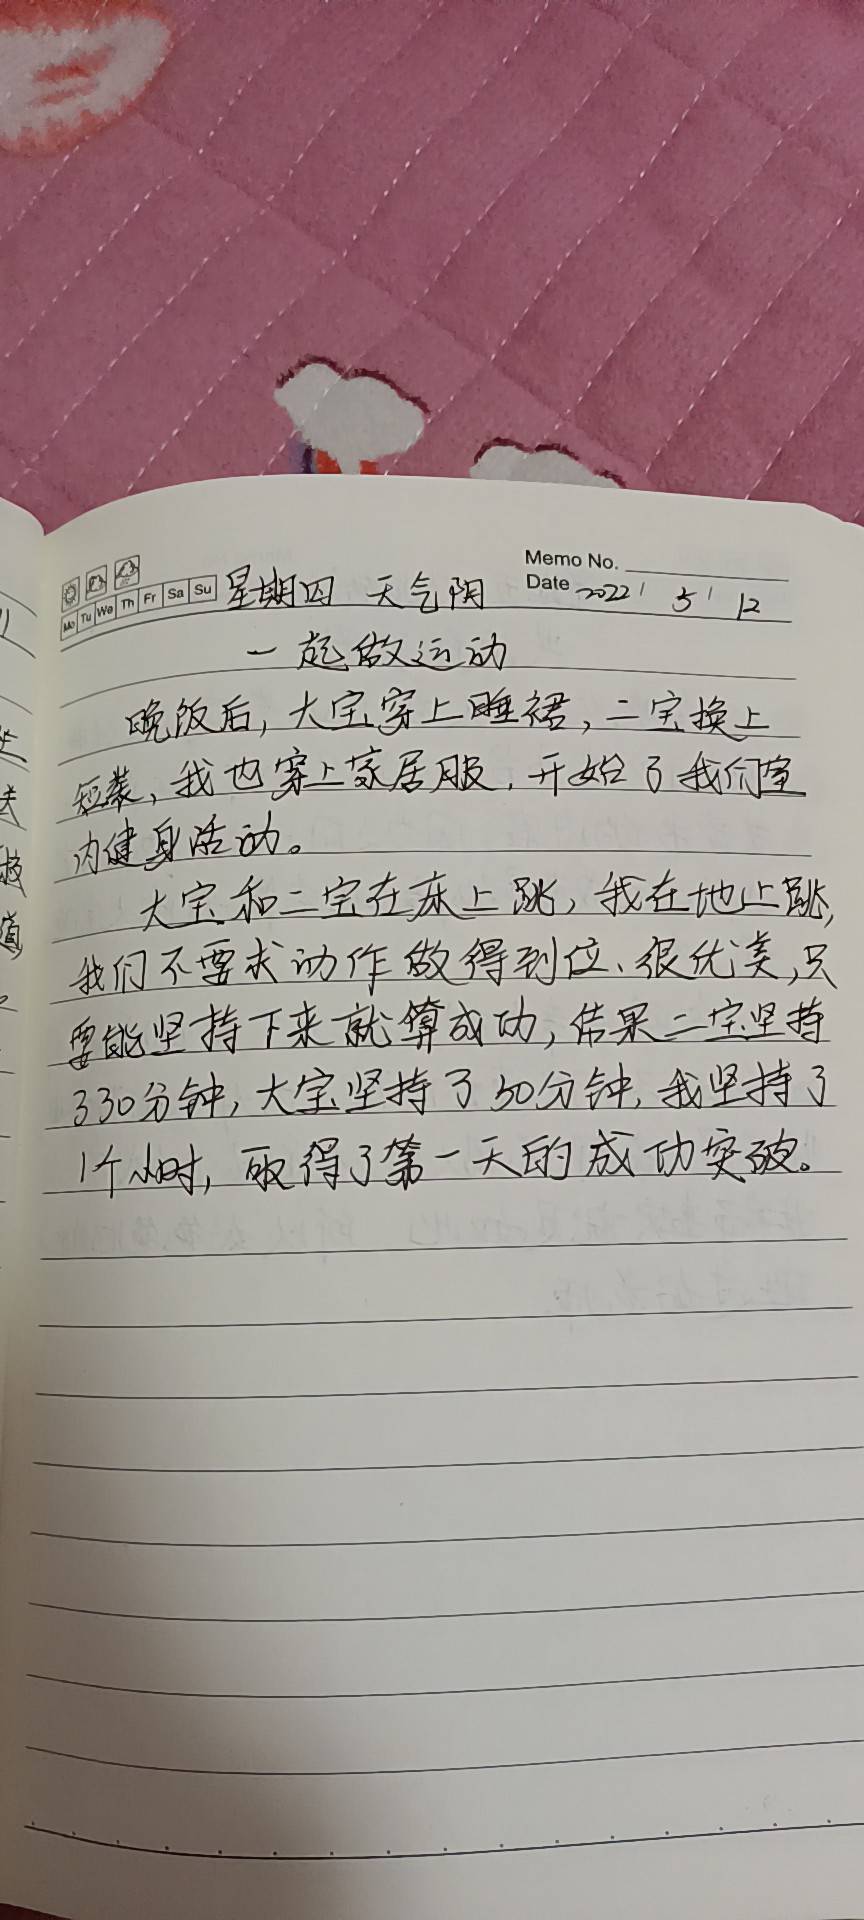 Memo No.
Mo Tu We Th Fr Sa Su 星期四 天气阴 Date 2022 / 5 / 12
一起做运动
晚饭后，大宝穿上睡裙，二宝换上
短装，我也穿上家居服，开始了我们室
内健身活动。
大宝和二宝在床上跳，我在地上跳，
我们不要求动作做得到位、很优美，只
要能坚持下来就算成功，结果二宝坚持
了30分钟，大宝坚持了50分钟，我坚持了
1个小时，取得了第一天的成功突破。